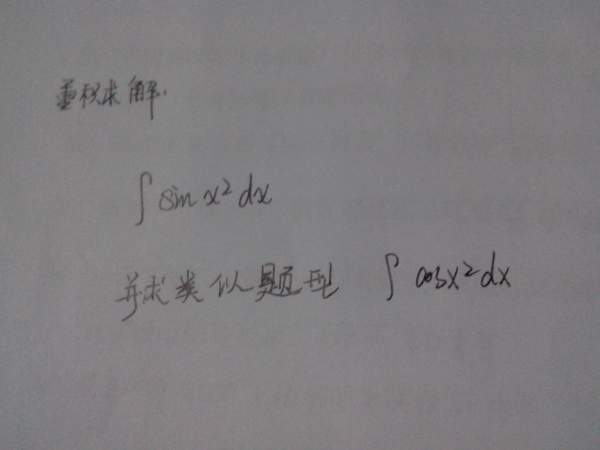 重积求解.
∫ sin x² dx
并求类似题型 ∫ cosx² dx